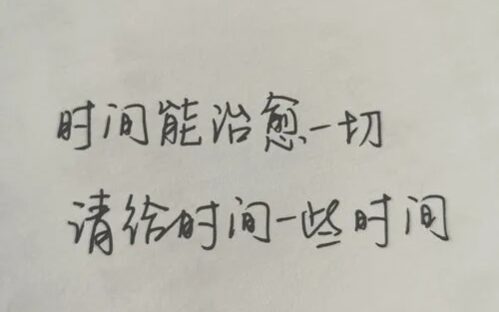 时间能治愈一切
请给时间一些时间